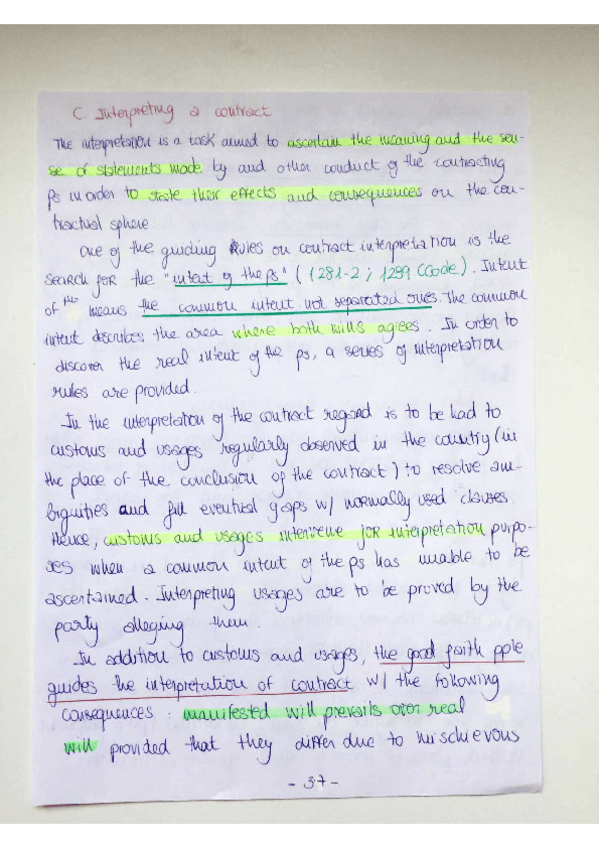 C. Interpreting a contract
The interpretation is a task aimed to ascertain the meaning and the sen-
se of statements made by and other conduct of the contracting
ps in order to state their effects and consequences on the con-
tractual sphere
One of the guiding Rules on contract interpretation is the
search for the "intent of the ps" (1281-2; 1289 CCode). Intent
of ps means the common intent not separated ones. The common
intent describes the area where both wills agrees. In order to
discover the real intent of the ps, a series of interpretation
rules are provided.
In the interpretation of the contract regard is to be had to
customs and usages regularly observed in the country (in
the place of the conclusion of the contract) to resolve am-
biguities and fill eventual gaps w/ normally used clauses.
Hence, customs and usages intervene for interpretation purpo-
ses when a common intent of the ps has unable to be
ascertained. Interpreting usages are to be proved by the
party alleging them.
In addition to customs and usages, the good faith pple
guides the interpretation of contract w/ the following
consequences: manifested will prevails over real
will provided that they differ due to mischievous
- 37 -